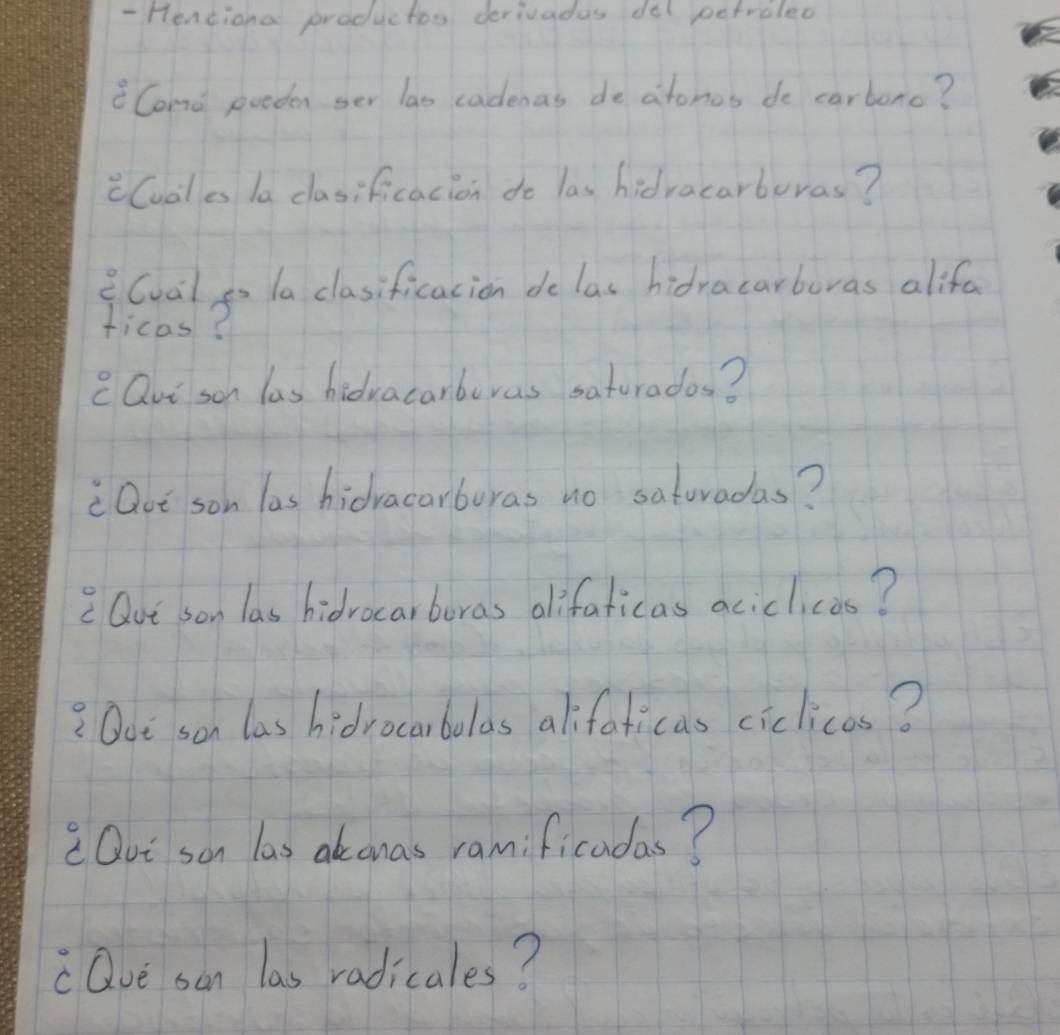 - Menciona productos derivados del petroleo
¿Como pueden ser las cadenas de átomos de carbono?
¿Cuál es la clasificación de las hidracarburas?
¿Cuál es la clasificación de las hidracarburas alifa
ticas?
¿Qué son las hidracarburas saturados?
¿Qué son las hidracarburas no saturadas?
¿Qué son las hidrocarburas alifaticas aciclicos?
¿Qué son las hidrocarbulas alifaticas cíclicos?
¿Qué son las alcanas ramificadas?
¿Qué son las radicales?